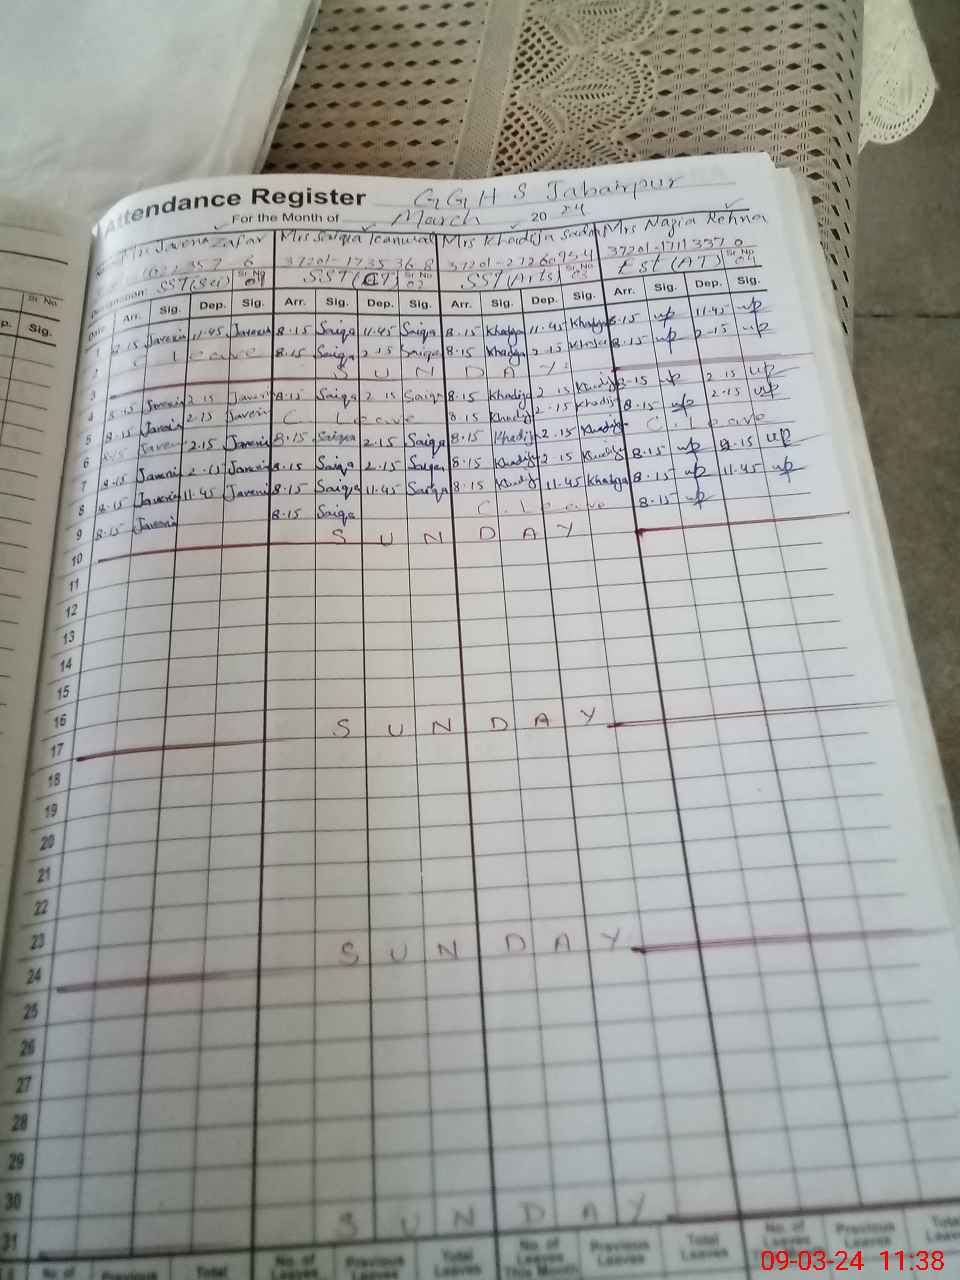 Attendance Register GGHS Jabairpur
For the Month of March 2024
Javeria Zafar Mrs Saiqa Mrs Khadija Mrs Nazia Rehna
37201-1735368 37201-1711337 0
SST (Sci) Sr. No 04 SST (CT) Sr. No 02 SST (Arts) Sr. No 03 Est (AT) Sr. No 04
Date Arr. Sig. Dep. Sig. Arr. Sig. Dep. Sig. Arr. Sig. Dep. Sig. Arr. Sig. Dep. Sig.
1 Javeria 11.45 Javeria 8.15 Saiqa 11.45 Saiqa 8.15 Khadija 11.45 Khadija 8.15 11.45
2 C Leave 8.15 Saiqa 2.15 Saiqa 8.15 Khadija 2.15 Khadija 8.15 2-15
3 S U N D A Y
4 8.15 Javeria 2.15 Javeria 8.15 Saiqa 2.15 Saiqa 8.15 Khadija 2.15 Khadija 8.15 2.15
5 8.15 Javeria 2.15 Javeria C. Leave 8.15 Khadija 2.15 Khadija 8.15 2.15
6 8.15 Javeria 2.15 Javeria 8.15 Saiqa 2.15 Saiqa 8.15 Khadija 2.15 Khadija C. Leave
7 8.15 Javeria 2.15 Javeria 8.15 Saiqa 2.15 Saiqa 8.15 Khadija 2.15 Khadija 8.15 2.15
8 8.15 Javeria 11.45 Javeria 8.15 Saiqa 11.45 Saiqa 8.15 Khadija 11.45 Khadija 8.15 11.45
9 8.15 Javeria 8.15 Saiqa C. Leave 8.15
10 S U N D A Y
11
12
13
14
15
16
17 S U N D A Y
18
19
20
21
22
23
24 S U N D A Y
25
26
27
28
29
30
31 S U N D A Y
No. of Previous Total No. of Leaves Previous Leaves Total Leaves No. of Leaves This Month Previous Leaves Total Leaves No. of Leaves Previous Leaves Total Leaves
09-03-24 11:38